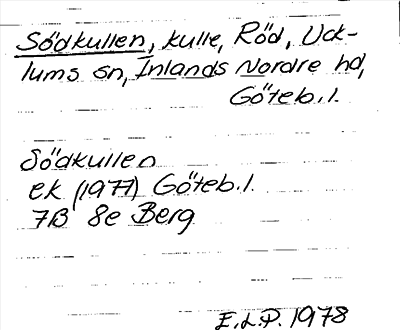 Södkullen, kulle, Röd, Uck-
lums sn, Inlands Nordre hd,
Göteb.l.
Södkullen
ek (1977) Göteb.l.
7B 8e Berg
E.L.P. 1978